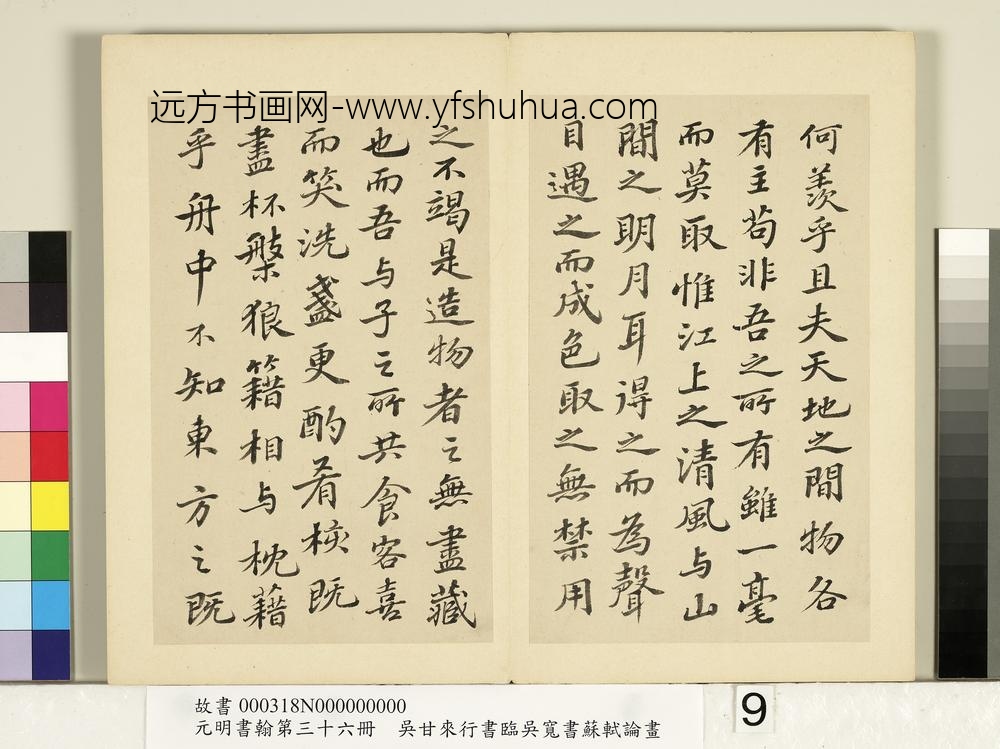 远方书画网-www.yfshuhua.com
何羨乎且夫天地之間物各
有主苟非吾之所有雖一毫
而莫取惟江上之清風与山
間之明月耳得之而為聲
目遇之而成色取之無禁用
之不竭是造物者之無盡藏
也而吾与子之所共食客喜
而笑洗盞更酌肴核既
盡杯槃狼籍相与枕藉
乎舟中不知東方之既
故書 000318N000000000
元明書翰第三十六冊 吳甘來行書臨吳寬書蘇軾論畫
9